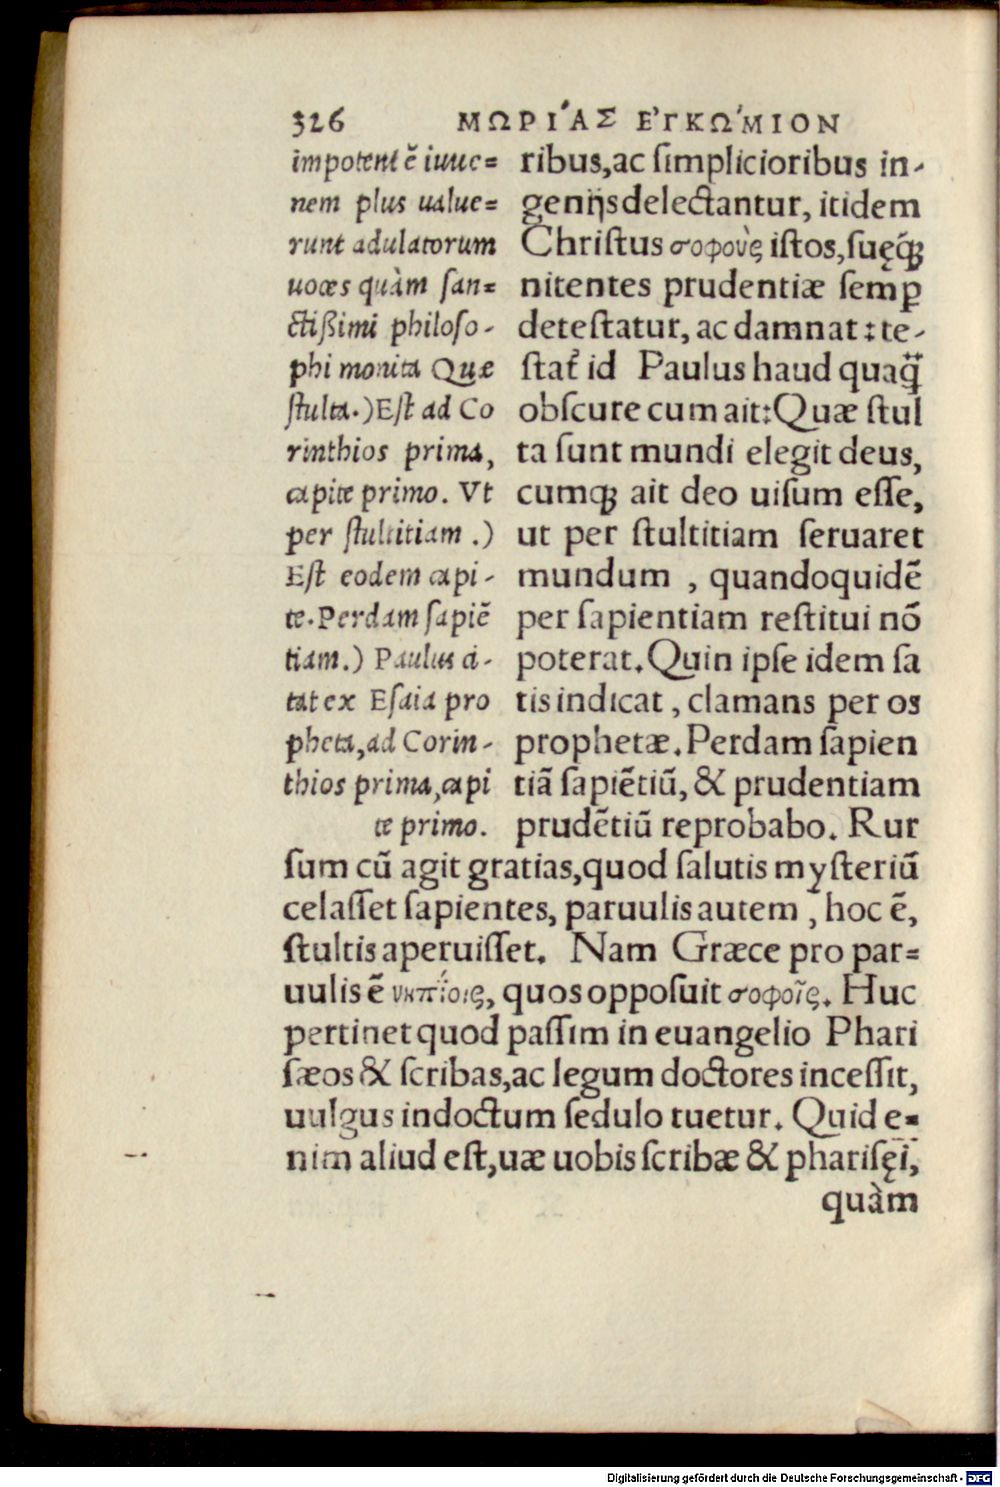 326 ΜΩΡΙ΄ΑΣ Ε᾿ΓΚΩ΄ΜΙΟΝ
impotentẽ iuue=
nem plus ualue=
runt adulatorum
uoces quàm san=
ctißimi philoso-
phi monita Quæ
stulta.) Est ad Co
rinthios prima,
capite primo. Vt
per stultitiam.)
Est eodem capi-
te. Perdam sapiẽ
tiam.) Paulus ci-
tat ex Esaia pro
pheta, ad Corin-
thios prima, capi
te primo.
ribus, ac simplicioribus in-
genijs delectantur, itidem
Christus σοφοὺς istos, suęq́;
nitentes prudentiæ semꝑ
detestatur, ac damnat: te-
stat᷑ id Paulus haud quaq̈̃
obscure cum ait: Quæ stul
ta sunt mundi elegit deus,
cumq; ait deo uisum esse,
ut per stultitiam seruaret
mundum, quandoquidẽ
per sapientiam restitui nõ
poterat. Quin ipse idem sa
tis indicat, clamans per os
prophetæ. Perdam sapien
tiã sapiẽtiũ, & prudentiam
prudẽtiũ reprobabo. Rur
sum cũ agit gratias, quod salutis mysteriũ
celasset sapientes, paruulis autem, hoc ẽ,
stultis aperuisset. Nam Græce pro par=
uulis ẽ νηπίοις, quos opposuit σοφοῖς. Huc
pertinet quod passim in euangelio Phari
sæos & scribas, ac legum doctores incessit,
uulgus indoctum sedulo tuetur. Quid e=
nim aliud est, uæ uobis scribæ & pharisęi,
quàm
Digitalisierung gefördert durch die Deutsche Forschungsgemeinschaft - DFG